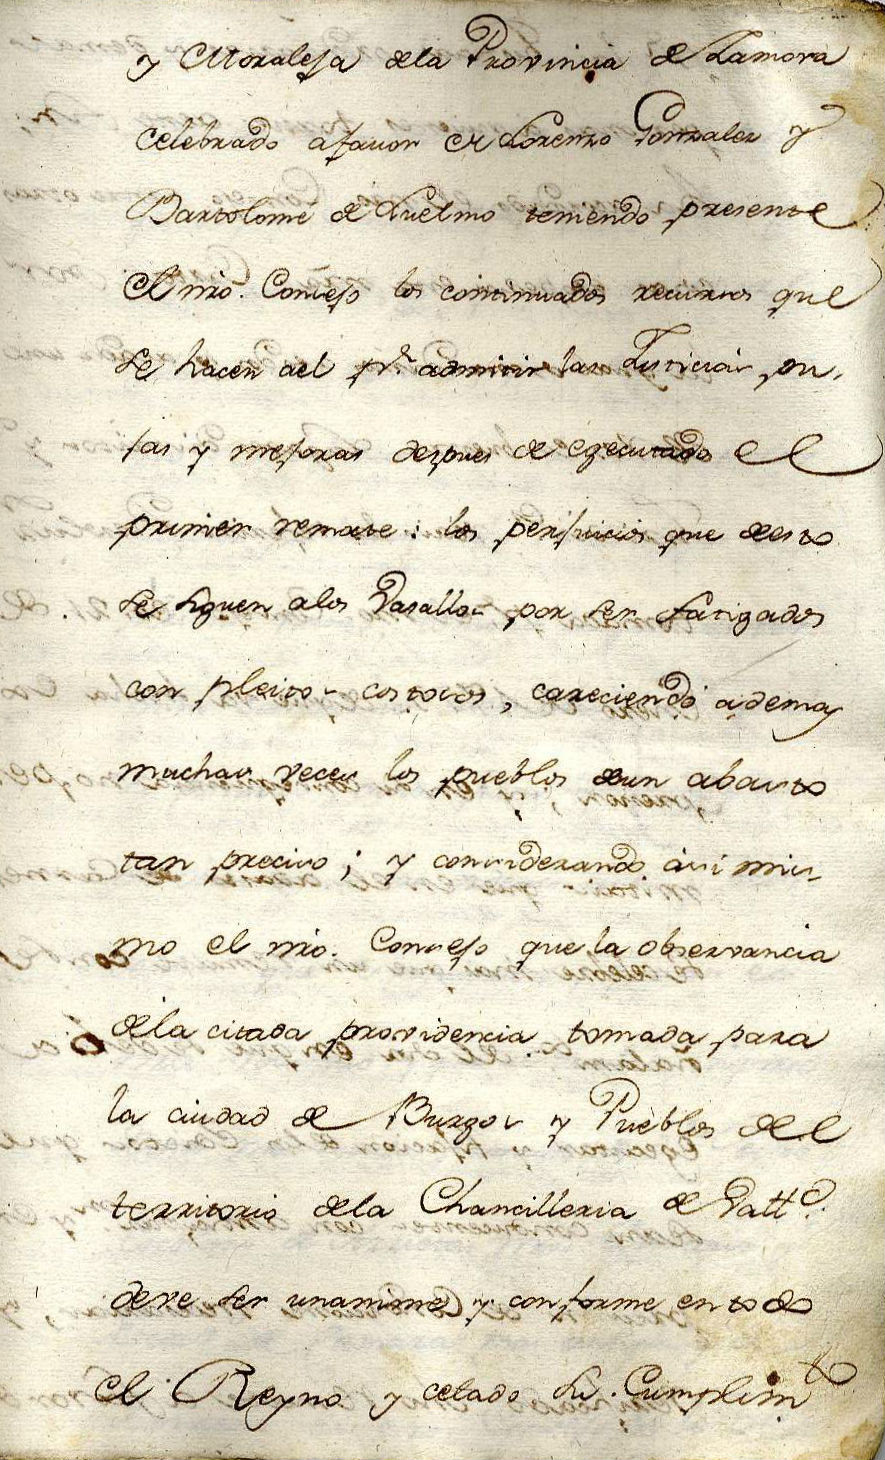 y Moraleja dela Provincia de Zamora
celebrado afavor de Lorenzo Gonzalez y
Bartolomé de Luelmo teniendo presente
el nrō. Consejo los continuados recursos que
se hacen del pr. admitir las Justicias pu-
jas y mejoras despues de egecutado el
primer remate: los perjuicios que deesto
se siguen alos Vasallos por ser fatigados
con pleitos costosos, careciendo ademas
muchas veces los pueblos deun abasto
tan preciso; y considerando asi mis-
mo el nrō. Consejo que la observancia
dela citada providencia tomada para
la ciudad de Burgos y Pueblos del
territorio dela Chancilleria de Valld.
deve ser unanime y conforme en todo
el Reyno y celado su Cumplimto